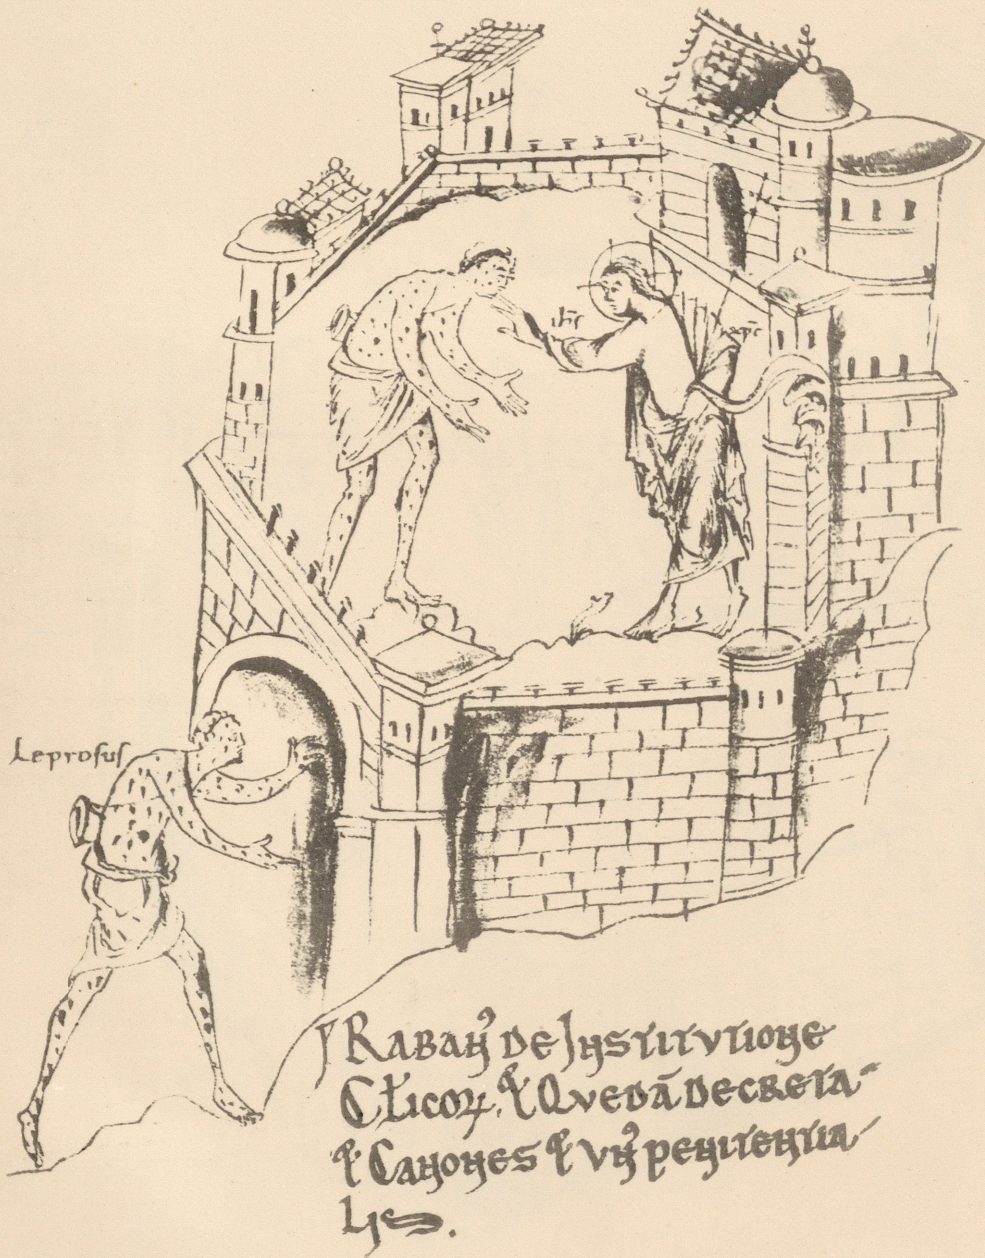 ihc xpc
Leprosus
Raban⁹ de Institutione
Cł̄icoꝝ. & Quedā decreta
& Canones & vn⁹ penitentia
lis.